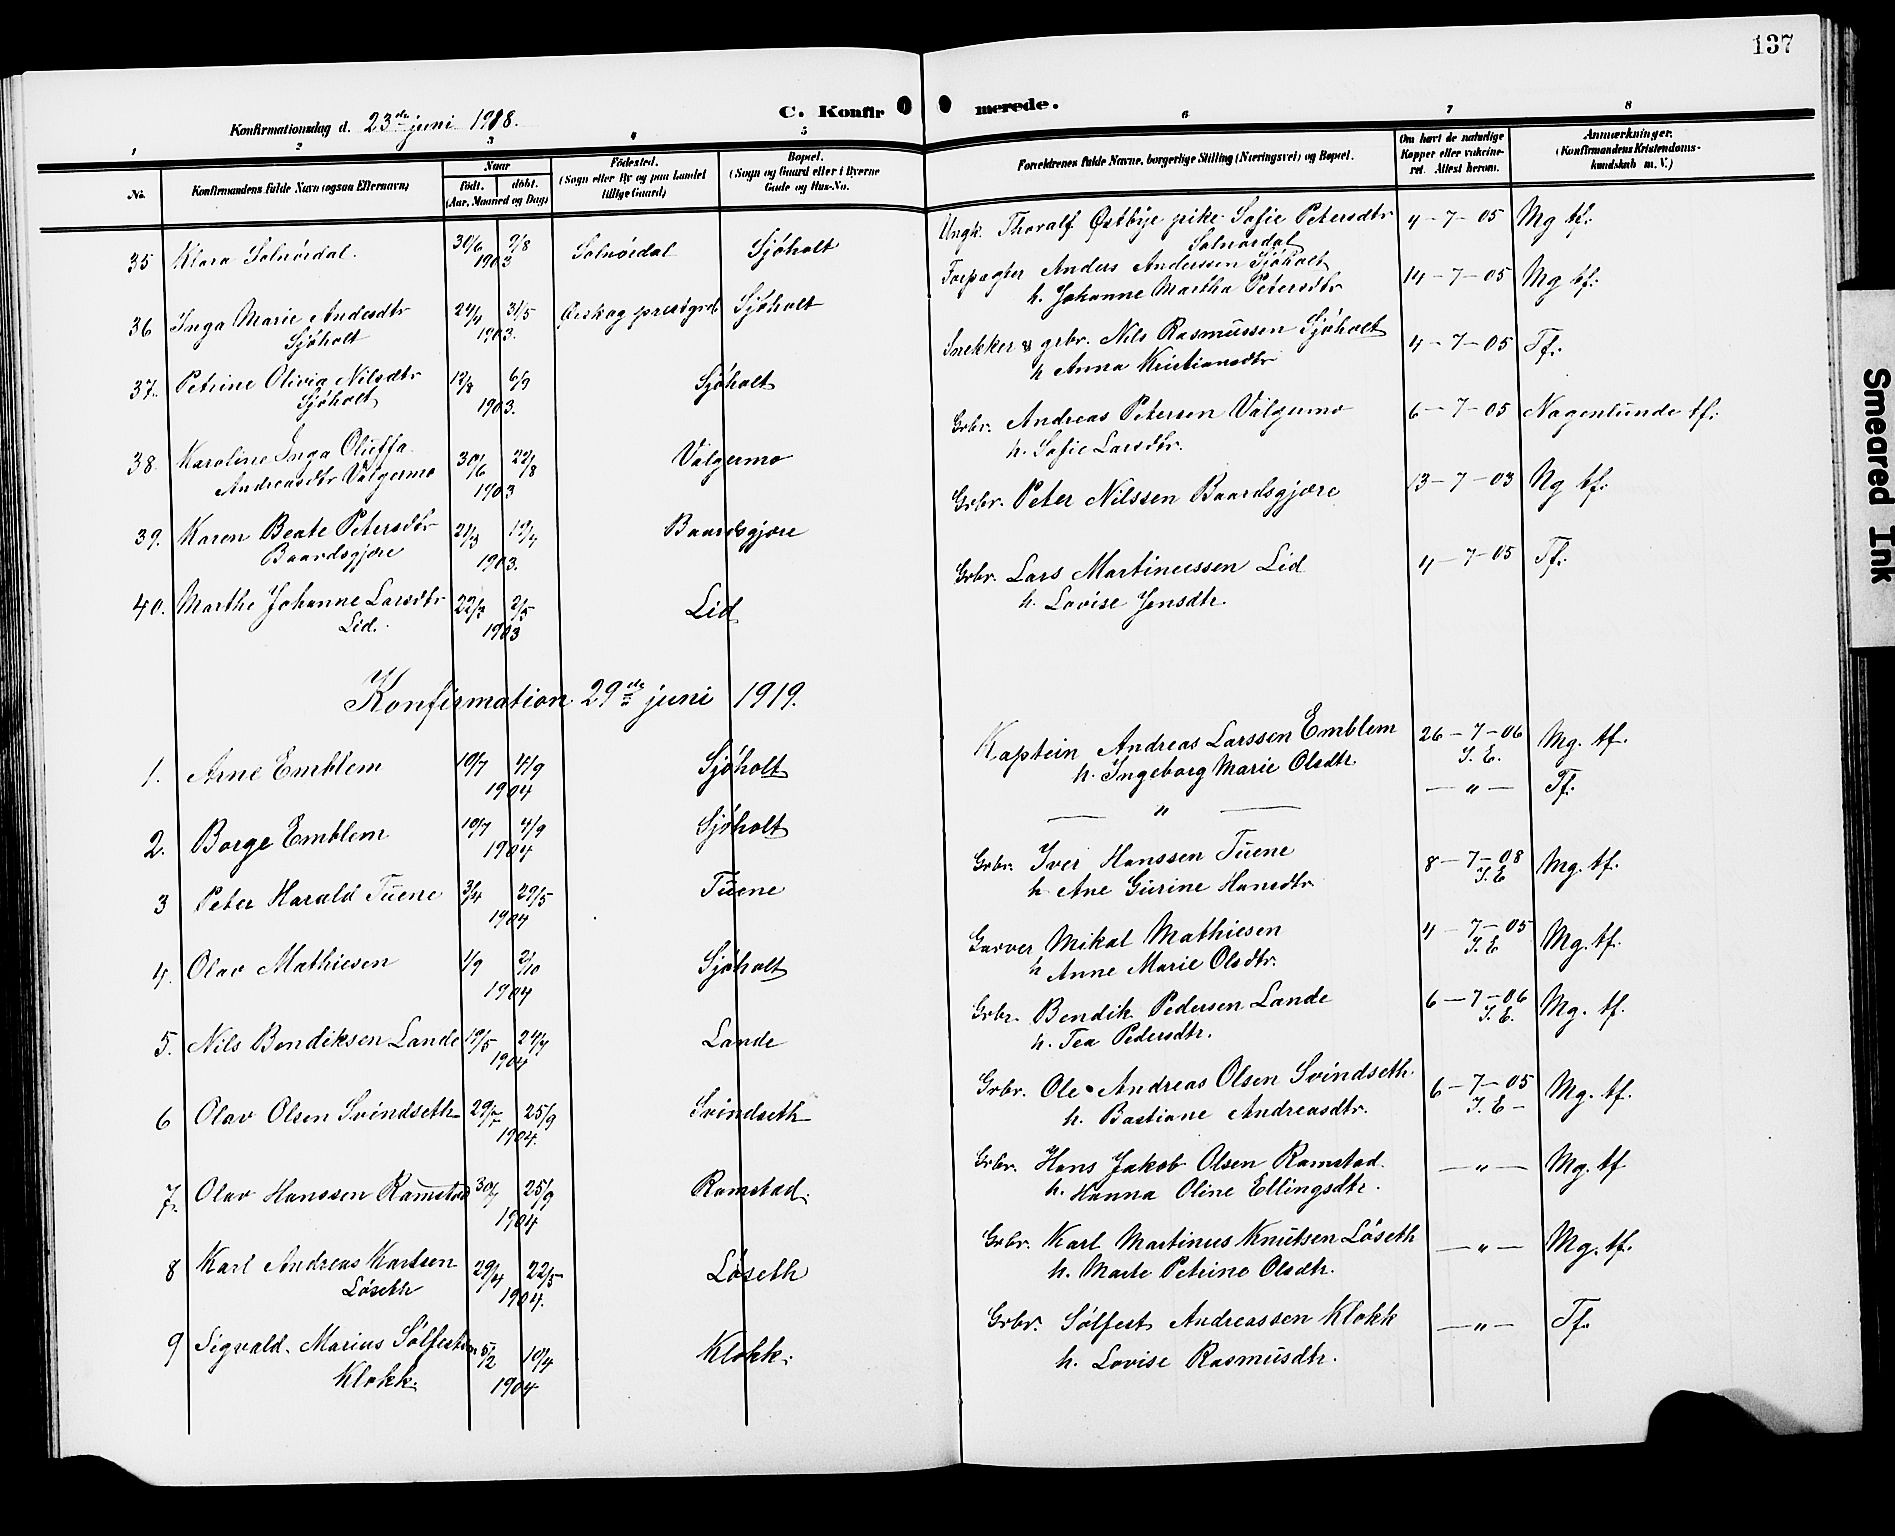 137
C. Konfirmerede.
Konfirmationsdag d. 23de juni 1918.
1 2 3 4 5 6 7 8
No. Konfirmandens fulde Navn (ogsaa Efternavn)
Naar
født. døbt.
(Aar, Maaned og Dag)
Fødested.
(Sogn eller By og paa Landet
tillige Gaard)
Bopæl.
(Sogn og Gaard eller i Byerne
Gade og Hus-No.
Forældrenes fulde Navne, borgerlige Stilling (Næringsvei) og Bopæl.
Om havt de naturlige
Kopper eller vakcine-
ret. Attest herom.
Anmærkninger.
(Konfirmandens Kristendoms-
kundskab m. V.)
35 Klara Solnørdal. 30/6 9/8 Solnørdal Sjøholt Ungk. Thoralf Østbye pike Sofie Petersdtr 4-7-05 Mg tf.
1903 Solnørdal
36 Inga Marie Andersdtr 24/4 31/5 Ørskog prestgrd Sjøholt Forpagter Anders Anderssen Sjøholt 14-7-05 Mg tf.
Sjøholt 1903. h. Johanne Martha Petersdtr
37. Petrine Olivia Nilsdtr 12/8 6/9 Sjøholt Snekker & grbr. Nils Rasmussen Sjøholt 4-7-05 Tf.
Sjøholt 1903. h Anna Kristiansdtr
38. Karoline Inga Oluffa 30/6 22/8 Valgermo Grbr. Andreas Petersen Valgermo 6-7-05 Nogenlunde tf.
Andreasdtr Valgermo 1903 h. Sofie Larsdtr.
39. Karen Beate Petersdtr 21/3 12/4 Baardsgjære Grbr. Peter Nilssen Baardsgjære 13-7-03 Mg tf.
Baardsgjære 1903.
40. Marthe Johanne Larsdtr 22/3 2/5 Lid Grbr. Lars Martinussen Lid 4-7-05 Tf.
Lid. 1903 h. Lovise Jensdtr.
Konfirmation 29de juni 1919.
1. Arne Emblem 10/7 4/9 Sjøholt Kaptein Andreas Larssen Emblem 26-7-06 Mg. tf.
1904 h. Ingeborg Marie Olsdtr. I. E.
2. Borge Emblem 10/7 4/9 Sjøholt — „ — — „ — Tf.
1904
3 Peter Harald Tuene 3/4 29/5 Tuene Grbr. Iver Hanssen Tuene 8-7-08 Mg. tf.
1904 h Ane Gurine Hansdtr. I. E
4. Olav Mathiesen 1/9 2/10 Sjøholt Garver Mikal Mathiesen 4-7-05 Mg. tf.
1904 h Anne Marie Olsdtr. I. E
5. Nils Bendiksen Lande 12/5 24/7 Lande Grbr. Bendik Pedersen Lande 6-7-06 Mg. tf.
1904 h. Tea Pedersdtr. I. E.
6 Olav Olsen Svindseth 29/7 25/9 Svindseth Grbr. Ole Andreas Olsen Svindseth 6-7-05 Mg. tf.
1904. h. Bastiane Andreasdtr. I. E-
7. Olav Hanssen Ramstad 30/7 25/9 Ramstad. Grbr. Hans Jakob Olsen Ramstad — „ — Mg. tf
1904 h. Hanna Oline Ellingsdtr.
8 Karl Andreas Karlsen 29/4 22/5 Løseth Grbr. Karl Martinus Knutsen Løseth — „ — Mg. tf.
Løseth 1904. h. Marte Petrine Olsdtr.
9 Sigvald Marius Sølfestsen 5/2 10/4 Klokk. Grbr. Sølfest Andreassen Klokk — „ — Tf.
Klokk. 1904 h. Lovise Rasmusdtr.
Smeared Ink